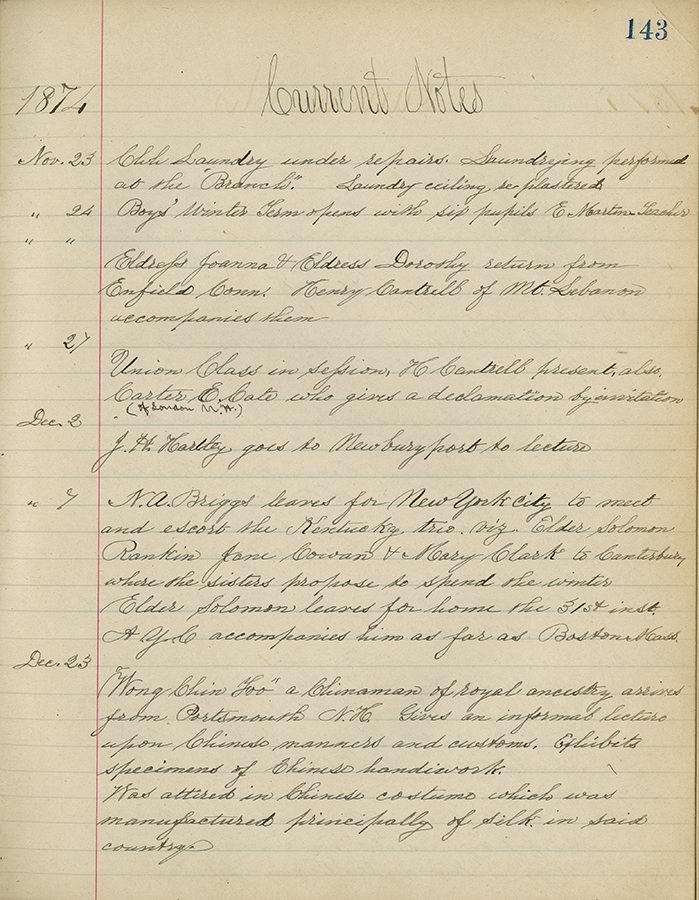 143
1874 Current Notes
Nov. 23 Chh Laundry under repairs. Laundrying performed
at the "Branch". Laundry ceiling re-plastered
" 24 Boys' Winter Term opens with six pupils E Martin Teacher
" "
Eldress Joanna & Eldress Dorothy return from
Enfield Conn. Henry Cantrell of Mt. Lebanon
accompanies them
" 27
Union Class in session, H Cantrell present, also,
Carter E. Cate who gives a declamation by invitation
(of Loudon N.H.)
Dec. 2
J. H. Hartley goes to Newburyport to lecture
" 7 N. A. Briggs leaves for New York city to meet
and escort the Kentucky trio. viz. Elder Solomon
Rankin Jane Cowan & Mary Clark to Canterbury,
where the sisters propose to spend the winter
Elder Solomon leaves for home the 31st inst.
A Y C accompanies him as far as Boston Mass.
Dec. 23
"Wong Chin Foo" a Chinaman of royal ancestry arrives
from Portsmouth N.H. Gives an informal lecture
upon Chinese manners and customs. Exhibits
specimens of Chinese handiwork.
Was attired in Chinese costume which was
manufactured principally of silk in said
country.